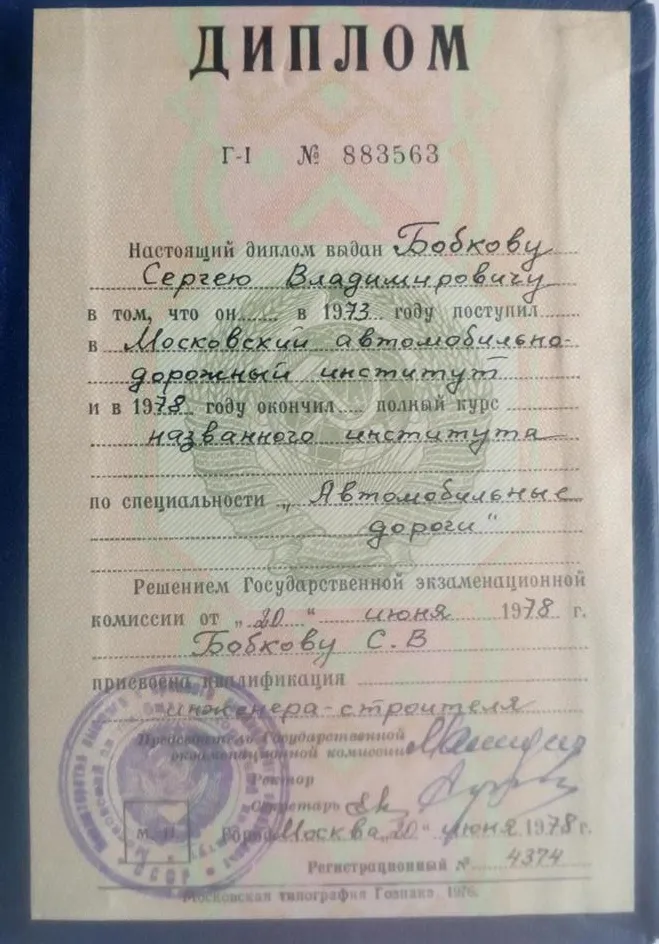 ДИПЛОМ
Г-I № 883563
Настоящий диплом выдан Бобкову
Сергею Владимировичу
в том, что он в 1973 году поступил
в Московский автомобильно-
дорожный институт
и в 1978 году окончил полный курс
названного института
по специальности „Автомобильные
дороги"
Решением Государственной экзаменационной
комиссии от „20" июня 1978 г.
Бобкову С. В
присвоена квалификация
инженера-строителя
Председатель Государственной
экзаменационной комиссии
Ректор
Секретарь
М. П.
Город Москва „20" июня 1978 г.
Регистрационный № 4374
Московская типография Гознака. 1976.
СССР